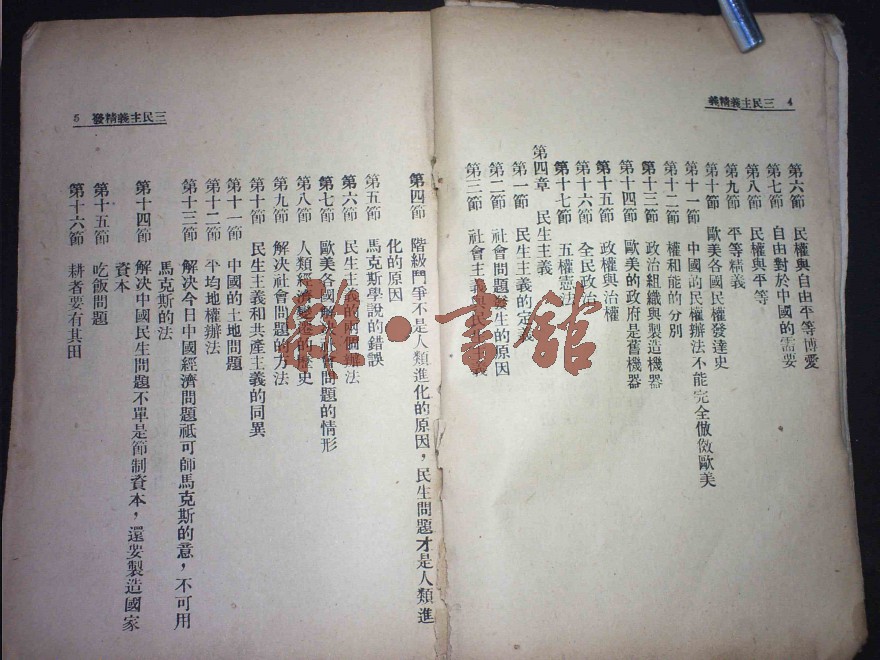 三民主義精義 4
第六節 民權與自由平等博愛
第七節 自由對於中國的需要
第八節 民權與平等
第九節 平等精義
第十節 歐美各國民權發達史
第十一節 中國的民權辦法不能完全倣傚歐美
第十二節 權和能的分別
第十三節 政治組織與製造機器
第十四節 歐美的政府是舊機器
第十五節 政權與治權
第十六節 全民政治
第十七節 五權憲法
第四章 民生主義
第一節 民生主義的定義
第二節 社會問題發生的原因
第三節 社會主義與民生主義
三民主義精發 5
第四節 階級鬥爭不是人類進化的原因，民生問題才是人類進
化的原因
第五節 馬克斯學說的錯誤
第六節 民生主義的兩個辦法
第七節 歐美各國解決社會問題的情形
第八節 人類經濟變進的歷史
第九節 解決社會問題的方法
第十節 民生主義和共產主義的同異
第十一節 中國的土地問題
第十二節 平均地權辦法
第十三節 解決今日中國經濟問題祗可師馬克斯的意，不可用
馬克斯的法
第十四節 解決中國民生問題不單是節制資本，還要製造國家
資本
第十五節 吃飯問題
第十六節 耕者要有其田
書館